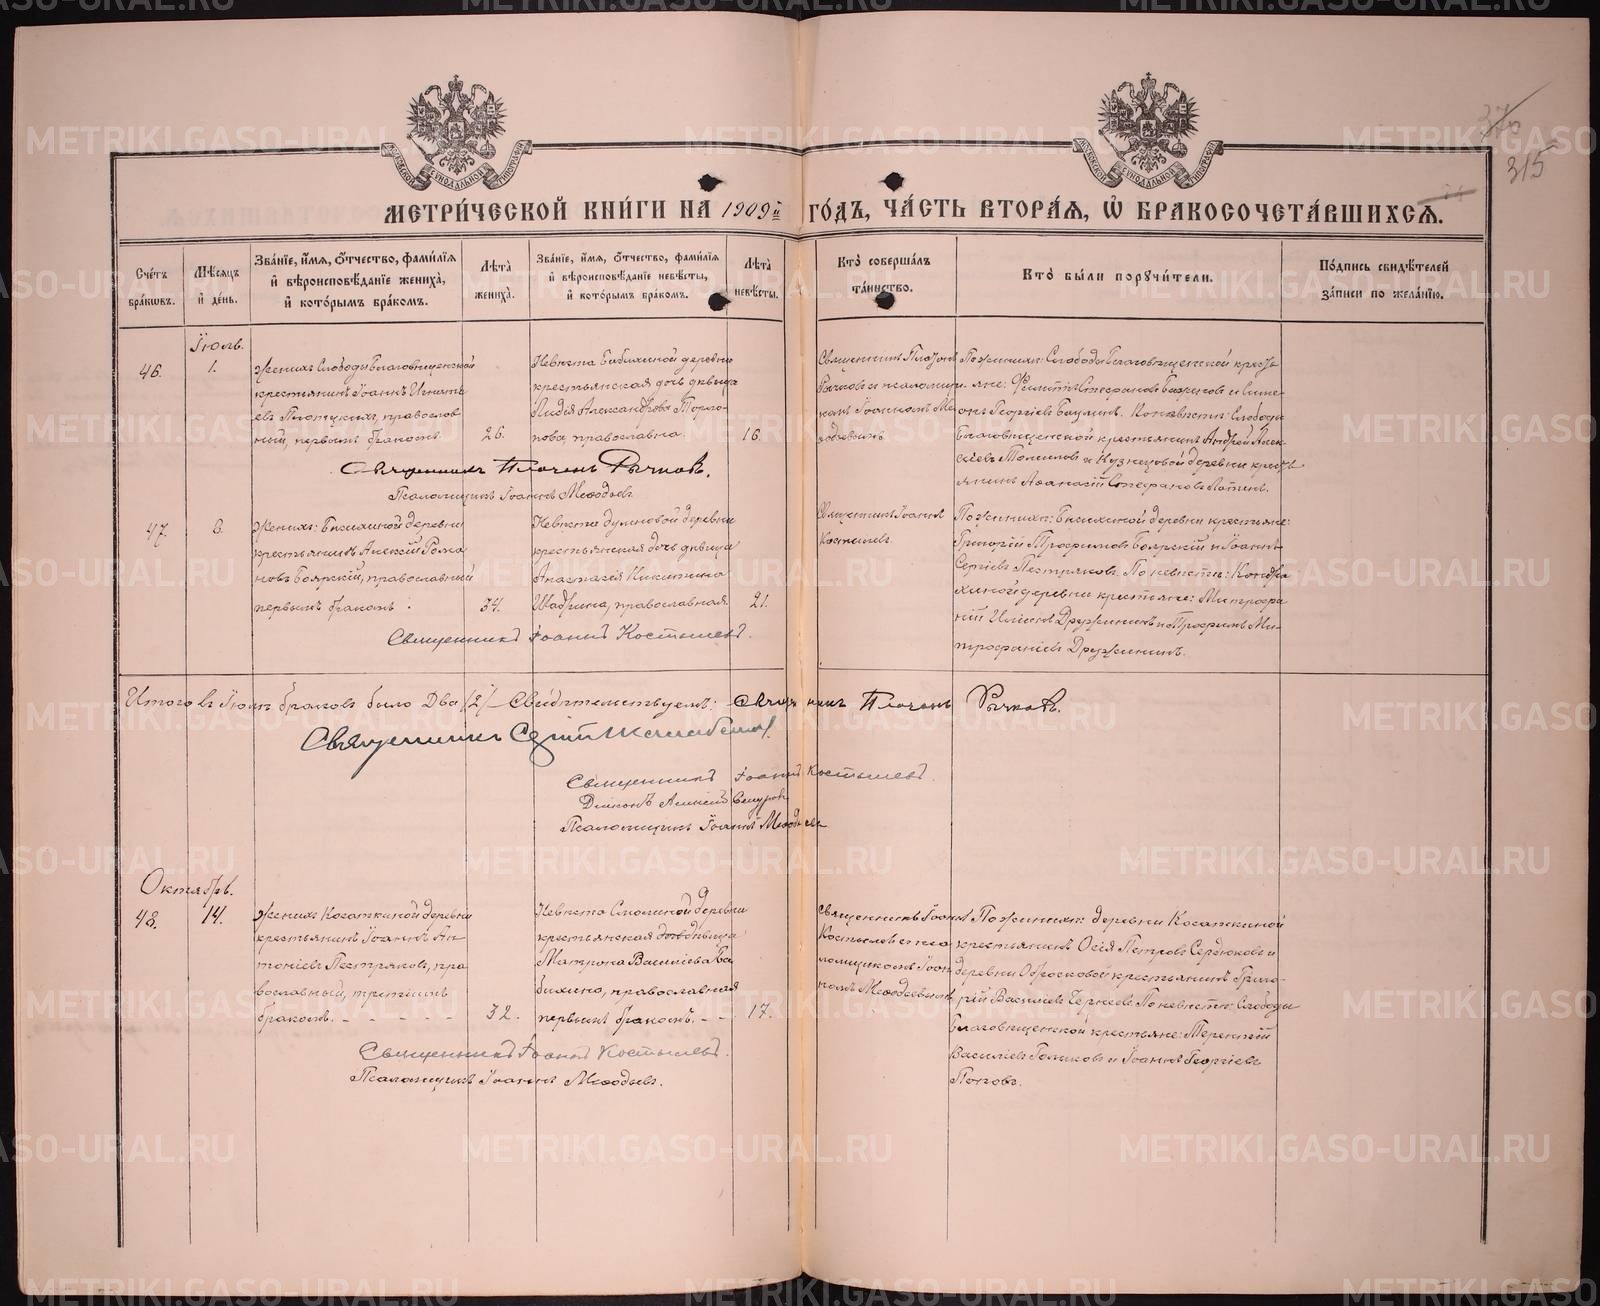 375
315
МЕТРИ́ЧЕСКОЙ КНИ́ГИ НА 1909й ГО́ДЪ, ЧА́СТЬ ВТОРА́Я, Ѿ БРАКОСОЧЕТА́ВШИХСЯ.
Сче́тъ бра́ковъ.
Мѣ́сяцъ и҆ де́нь.
Зва́нїе, и҆́мя, ѻ҆́тчество, фами́лїя и҆ вѣроисповѣ́данїе жениха̀, и҆ кото́рымъ бра́комъ.
Лѣ́та жениха̀.
Зва́нїе, и҆́мя, ѻ҆́тчество, фами́лїя и҆ вѣроисповѣ́данїе невѣ́сты, и҆ кото́рымъ бра́комъ.
Лѣ́та невѣ́сты.
Кто̀ соверша́лъ та́инство.
Кто̀ бы́ли порꙋчи́тели.
По́дпись свидѣ́телей за́писи по жела́нїю.
Іюль.
46.
1.
Женихъ Слободы Благовѣщенской
крестьянинъ Іоаннъ Игнать
евъ православ
ный, первымъ бракомъ
26.
Невѣста Бабихиной деревни
крестьянская дочь дѣвица
Лидія Александрова
православна.
16.
Священникъ Платонъ
Рычковъ и псаломщи
комъ Іоанномъ Ме
ѳодьевымъ
По женихѣ: Слободы Благовѣщенской кресть
яне: Стефановъ и Симе
онъ Георгіевъ По невѣстѣ: Слободы
Благовѣщенской крестьянинъ Андрей Алек
сіевъ и Кузнецовой деревни кресть
янинъ Аѳанасій Стефановъ
Священникъ Платонъ Рычковъ.
Псаломщикъ Іоаннъ Меѳодьевъ
47.
Женихъ: деревни
крестьянинъ Алексій Рома
новъ Боярскій, православный
первымъ бракомъ.
34.
Невѣста деревни
крестьянская дочь дѣвица
Анастасія Никитина
Шадрина, православная.
21.
Священникъ Іоаннъ
Костылевъ.
По женихѣ: деревни крестьяне:
Григорій Трофимовъ Боярскій и Іоаннъ
Сергіевъ Пестряковъ. По невѣстѣ: Кондра
хиной деревни крестьяне: Митрофа
ній Иліинъ Дружининъ и Трофимъ Ми-
трофаніевъ Дружининъ.
Священникъ Іоаннъ Костылевъ.
Итого въ Іюлѣ браковъ было Два /2/ – Свидѣтельствуемъ: Священникъ Платонъ Рычковъ.
Священникъ Сергій
Священникъ Іоаннъ Костылевъ.
Діаконъ Алексій
Псаломщикъ Іоаннъ Меѳодьевъ
Октябрь.
48.
14.
Женихъ Косаткиной деревни
крестьянинъ Іоаннъ Ан
тоніевъ Пестряковъ, пра
вославный, третьимъ
бракомъ.
32.
Невѣста Смолиной деревни
крестьянская дѣвица
Матрона Василіева Ба
бихина, православная
первымъ бракомъ.
17.
Священникъ Іоаннъ
Костылевъ и пса
ломщикомъ Іоан
номъ Меѳодьевымъ
По женихѣ: деревни Косаткиной
крестьянинъ Осія Петровъ Сердюковъ и
деревни Обросковой крестьянинъ Григо-
рій Василіевъ По невѣстѣ: Слободы
Благовѣщенской крестьяне: Терентій
Василіевъ Голиковъ и Іоаннъ Георгіевъ
Поповъ.
Священникъ Іоаннъ Костылевъ.
Псаломщикъ Іоаннъ Меѳодьевъ.
METRIKI.GASO-URAL.RU